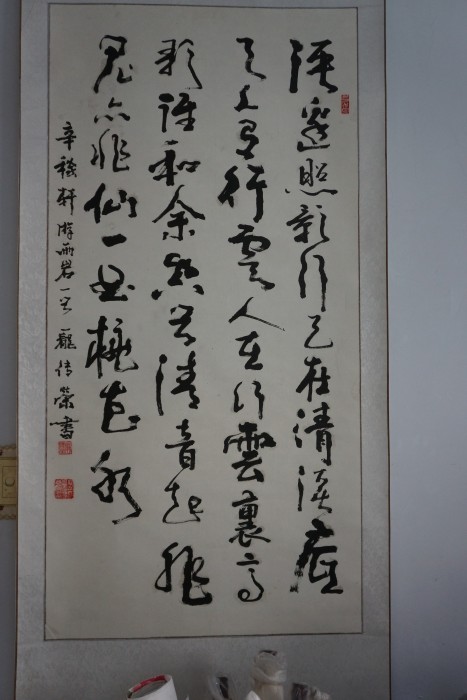 溪邊照影行天在清溪底
天上有行雲人在行雲裏高
歌誰和余空谷清音起非
鬼亦非仙一曲桃花水
辛稼軒游雨岩一首 龍传榮書